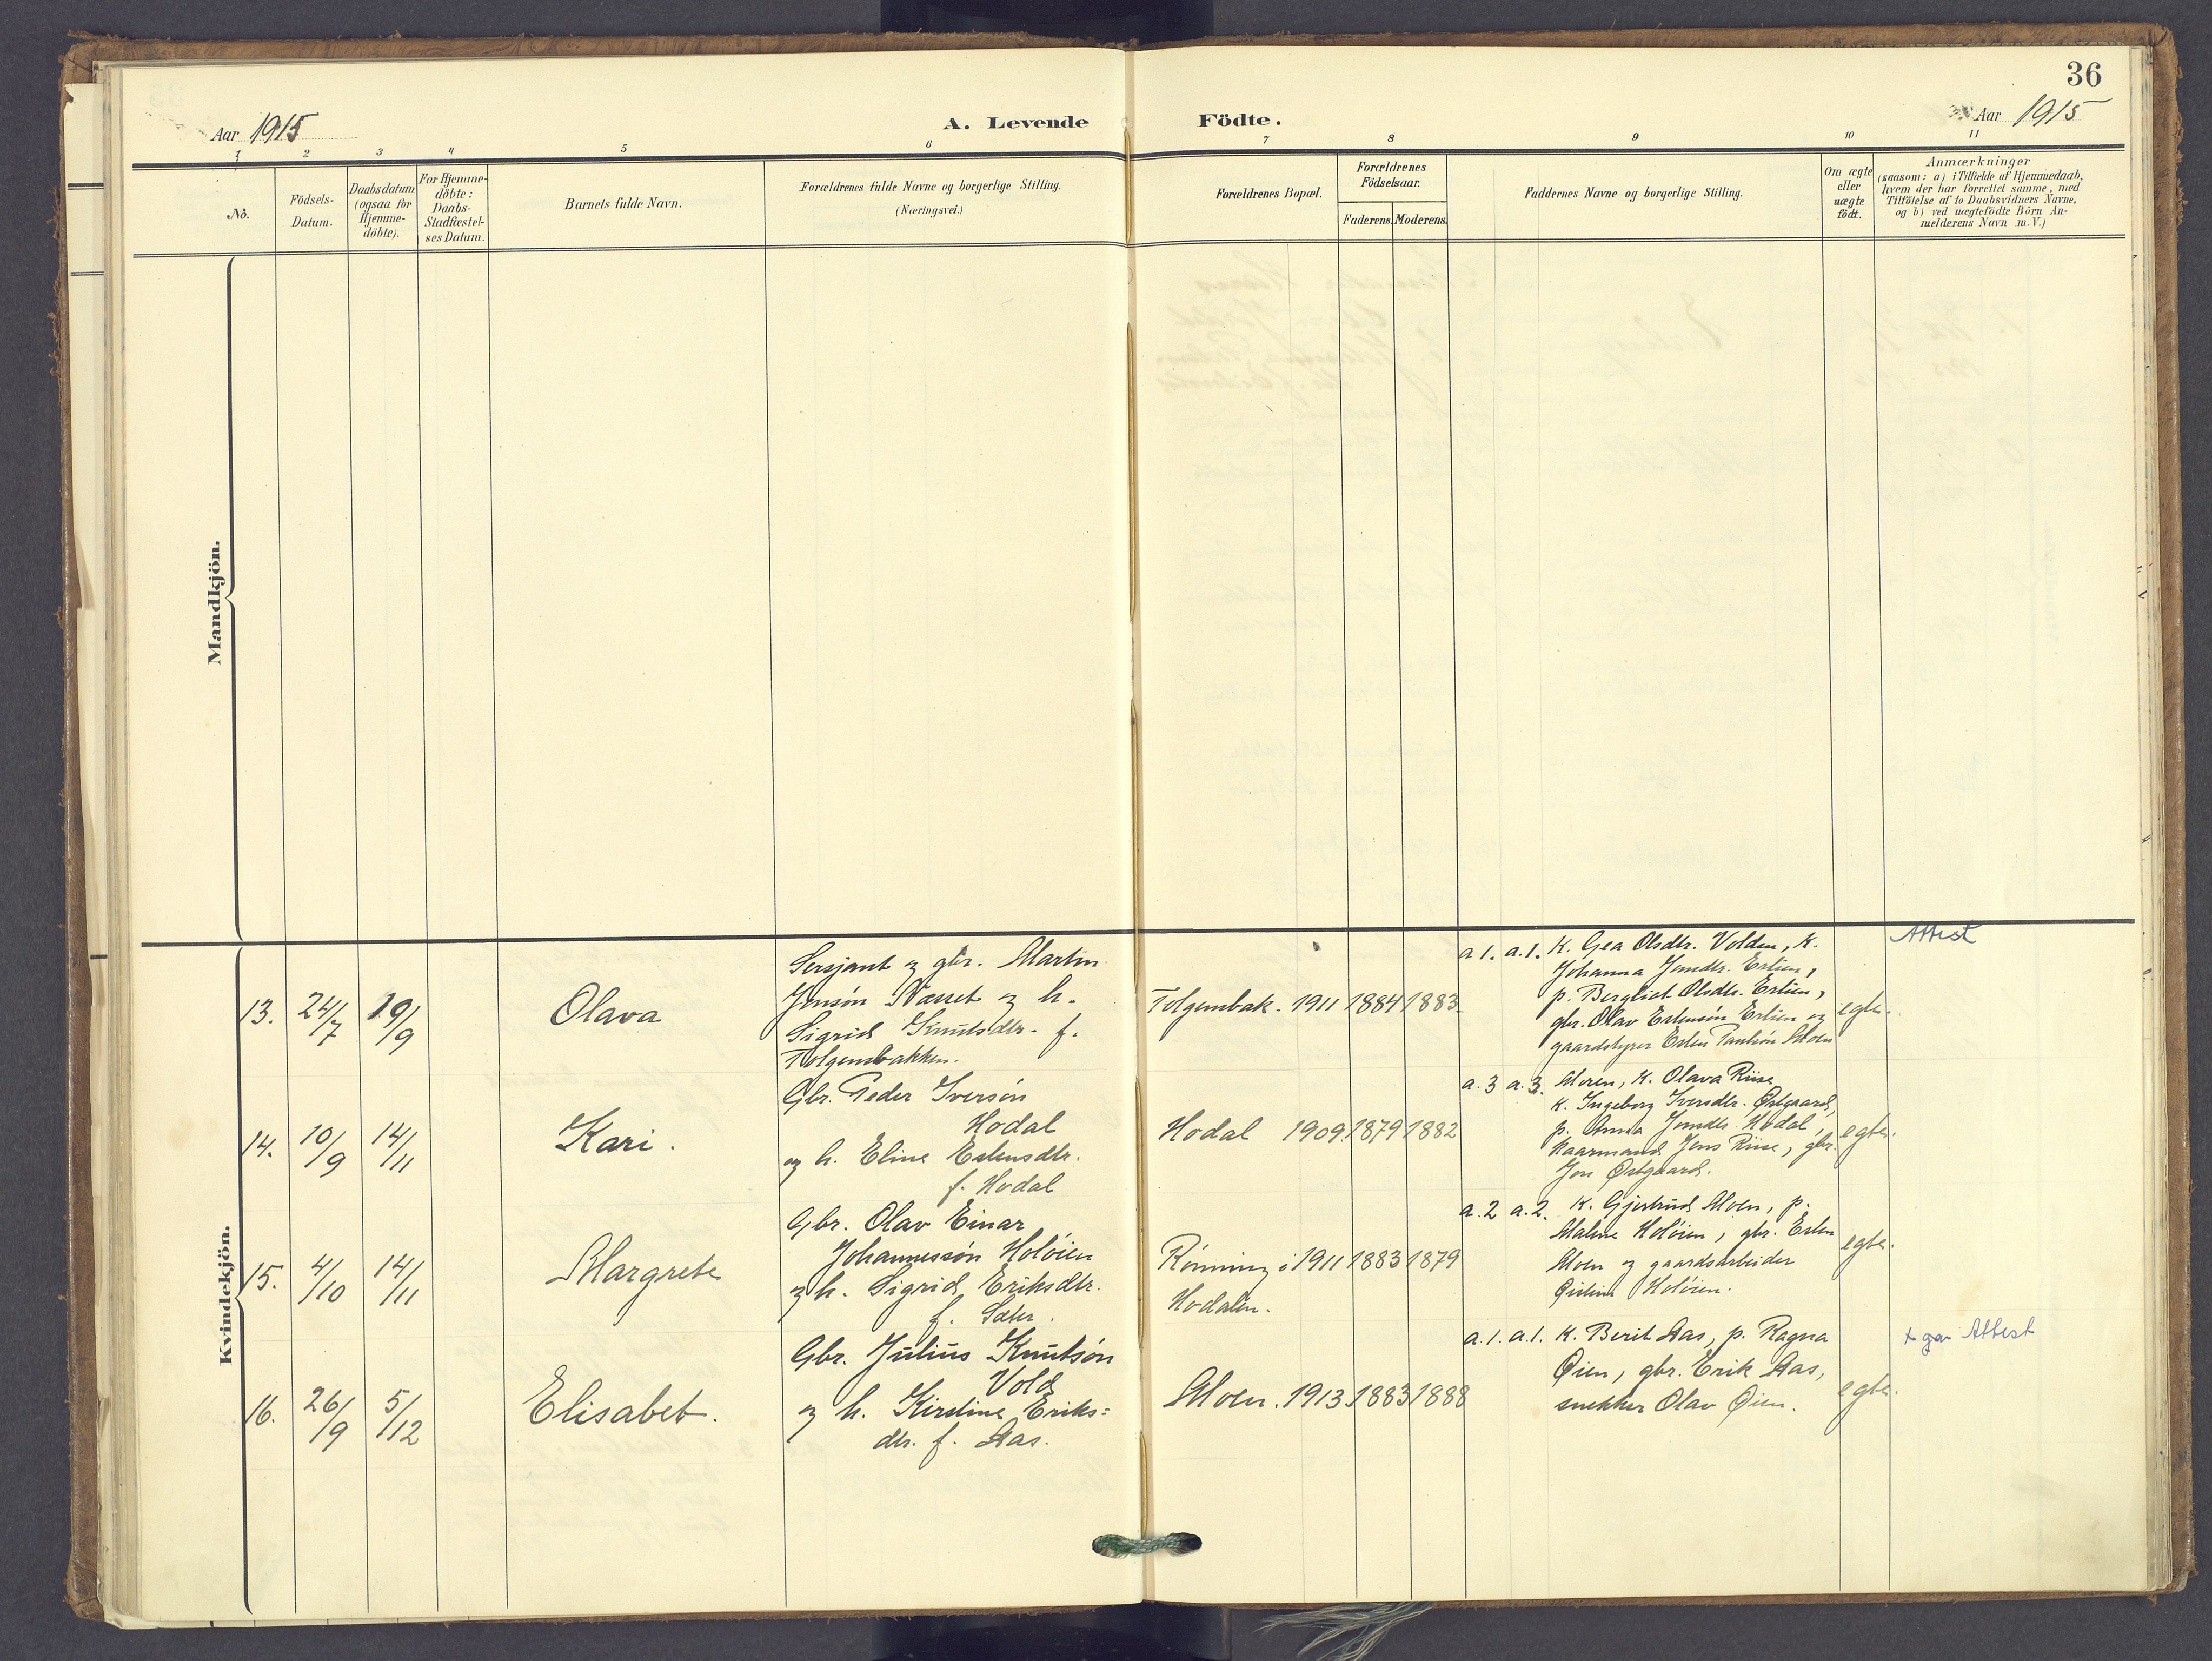 36
Aar 1915
A. Levende Födte.
Aar 1915
1 2 3 4 5 6 7 8 9 10 11
No.
Födsels-
Datum.
Daabsdatum
(ogsaa for
Hjemme-
döbte).
For Hjemme-
döbte:
Daabs-
Stadfæstel-
ses Datum.
Barnets fulde Navn.
Forældrenes fulde Navne og borgerlige Stilling.
(Næringsvei.)
Forældrenes Bopæl.
Forældrenes
Födselsaar.
Faderens. Moderens.
Faddernes Navne og borgerlige Stilling.
Om ægte
eller
uægte
födt.
Anmærkninger
(saasom: a) i Tilfælde af Hjemmedaab,
hvem der har forrettet samme, med
Tilföielse af to Daabsvidners Navne,
og b) ved uægtefödte Börn An-
melderens Navn m.V.)
Mandkjön.
Kvindekjön.
13. 24/7 19/9
Olava
Sersjant og gbr. Martin
Jonsön Næsset og h.
Sigrid Knutsdtr. f.
Tolgensbakken.
Tolgensbak. 1911 1884 1883
a 1. a. 1. K. Gea Olsdtr. Volden, K.
Johanna Jonsdtr. Erlien,
p. Bergliot Olsdtr. Erlien,
gbr. Olav Estensön Erlien og
gaardstyrer Esten Moen
egte.
Attest
14. 10/9 14/11
Kari.
Gbr. Peder Iversön
Hodal
og h. Eline Estensdtr.
f. Hodal
Hodal 1909 1879 1882
a. 3 a. 3. Moren, K. Olava Riise
K. Ingeborg Iversdtr. Østgaard,
p. Anna Jonsdtr. Hodal,
kaarmand Jens Riise, gbr.
Jon Østgaard.
egte.
15. 4/10 14/11
Margrete
Gbr. Olav Einar
Johannessön Holöien
og h. Sigrid Eriksdtr.
f. Sæter.
Rönning i 1911 1883 1879
Hodalen.
a. 2 a. 2. K. Gjertrud Moen, p.
Malene Holöien, gbr. Esten
Moen og gaardsarbeider
Holöien.
egte.
16. 26/9 5/12
Elisabet.
Gbr. Julius Knutsön
Vold
og h. Kirstine Eriks=
dtr. f. Aas.
Moen. 1913 1883 1888
a. 1. a. 1. K. Berit Aas, p. Ragna
Øien, gbr. Erik Aas,
snekker Olav Øien.
egte.
Attest